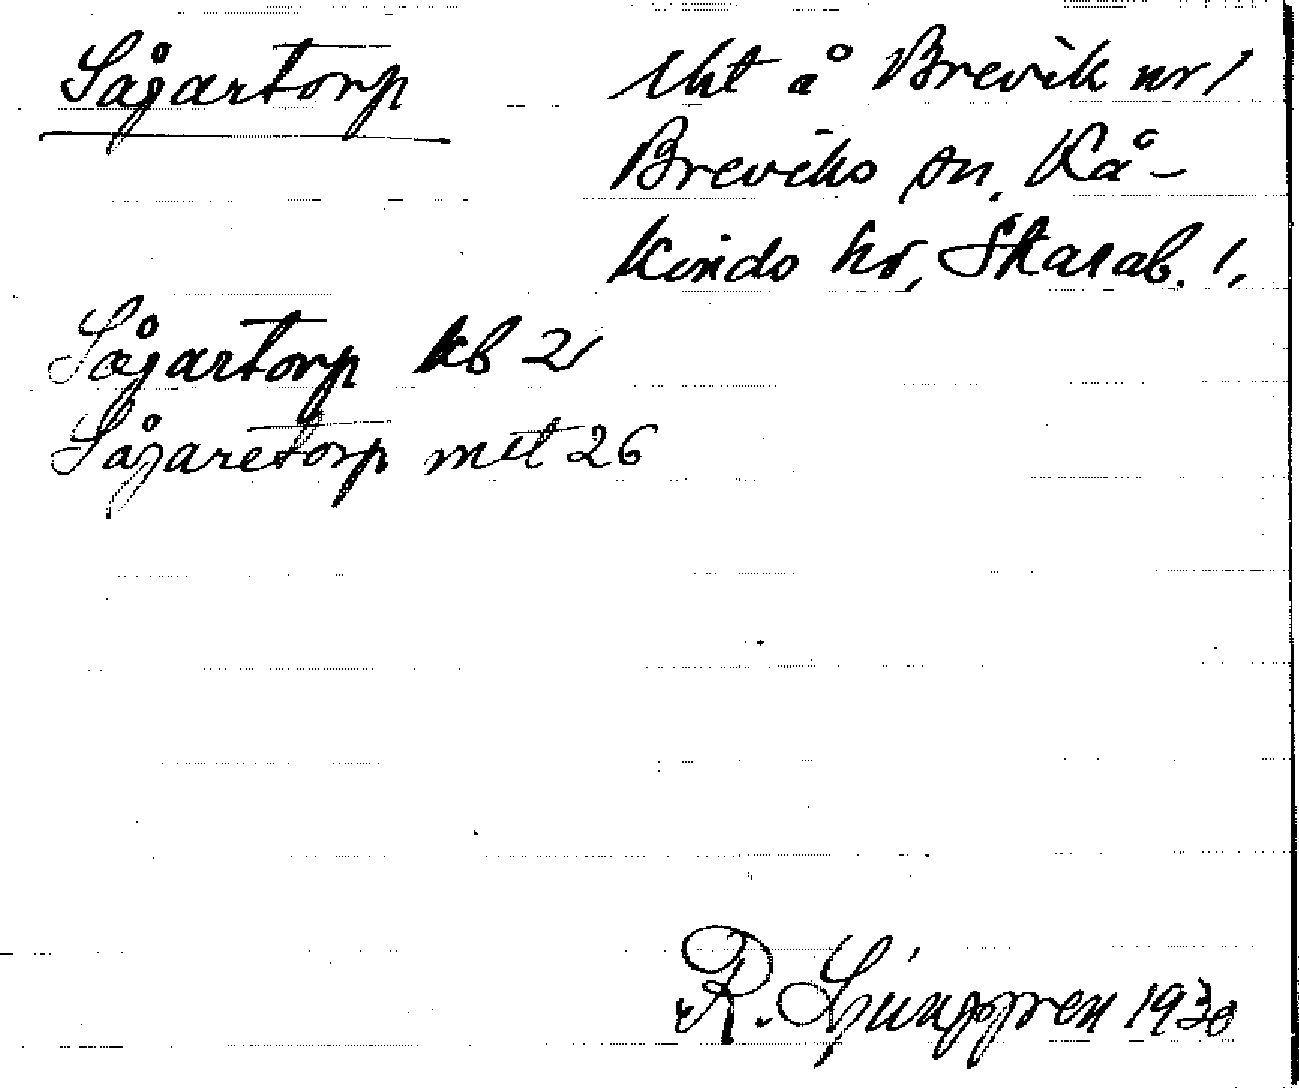 Sågartorp
Uht å Brevik nr 1
Breviks sn, Kå-
kinds hd, Skarab. l.
Sågartorp kb 2
Sågaretorp mtl 26
R. Ljunggren 1930